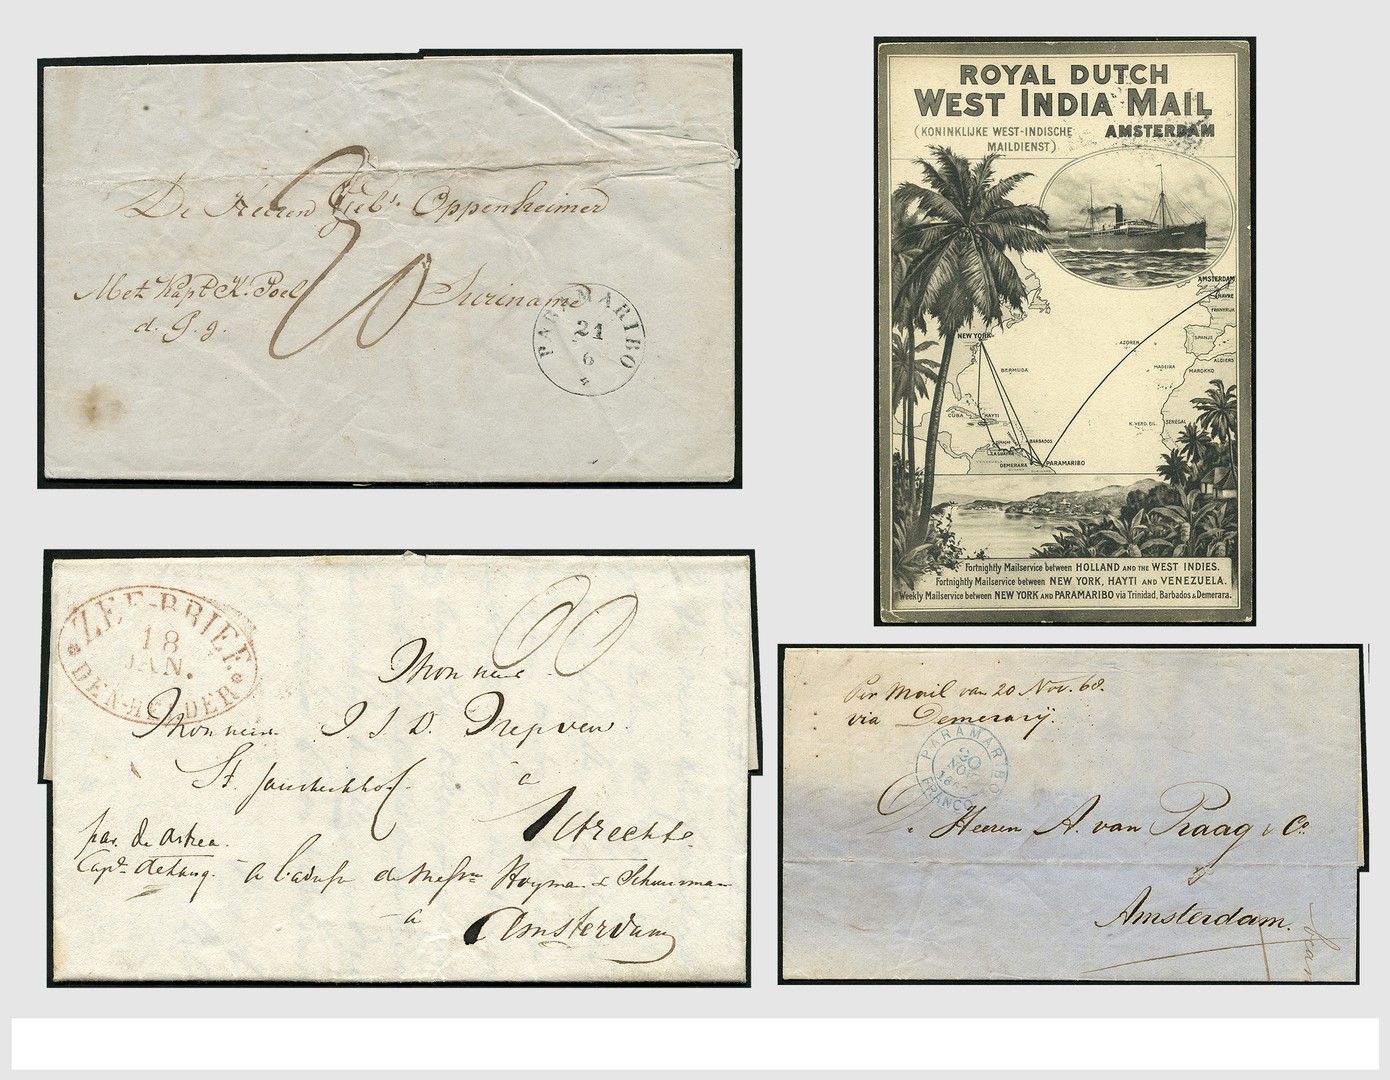 De Heeren Gebs. Oppenheimer
Met Kapt K. Poel
Suriname
d. G. g.
20
PARAMARIBO
21
6
ROYAL DUTCH
WEST INDIA MAIL
(KONINKLIJKE WEST-INDISCHE
MAILDIENST)
AMSTERDAM
AMSTERDAM
HAVRE
FRANKRIJK
SPANJE
ALGIERS
MAROKKO
AZOREN
MADEIRA
NEW YORK
BERMUDA
CUBA
HAYTI
K. VERD. EIL.
SENEGAL
BARBADOS
LA GUAIRA
DEMERARA
PARAMARIBO
Fortnightly Mailservice between HOLLAND AND THE WEST INDIES.
Fortnightly Mailservice between NEW YORK, HAYTI AND VENEZUELA.
Weekly Mailservice between NEW YORK AND PARAMARIBO via Trinidad, Barbados & Demerara.
ZEE-BRIEF
18
JAN.
DEN-HELDER
60
Monsieur
Monsieur J S D.
à
Utrecht
par de Astrea.
Capt.
à l'adresse de Mess
Schuurman
à
Amsterdam
Per Mail van 20 Nov. 68.
via Demerarÿ.
PARAMARIBO
20
NOV
FRANCO
De Heeren A. van Praag & Co.
Amsterdam.